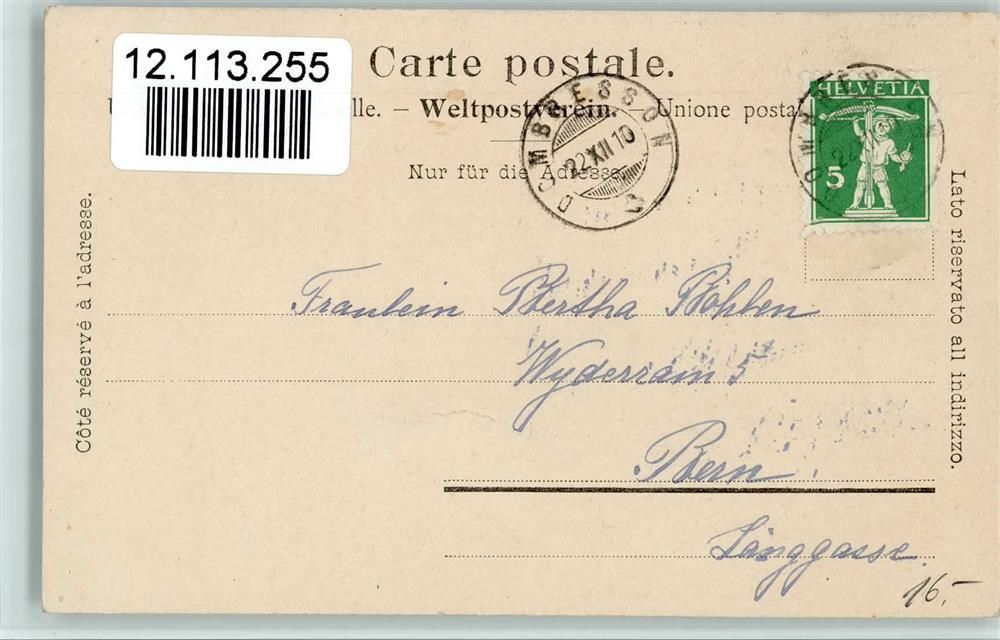 12.113.255
Carte postale.
lle. – Weltpostverein. – Unione postal
Nur für die Adresse.
DOMBRESSON
22 XII 10
HELVETIA
5
Côté réservé à l'adresse.
Lato riservato all indirizzo.
Fraulein Bertha
Wyderrain 5
Bern.
Länggasse.
16.-